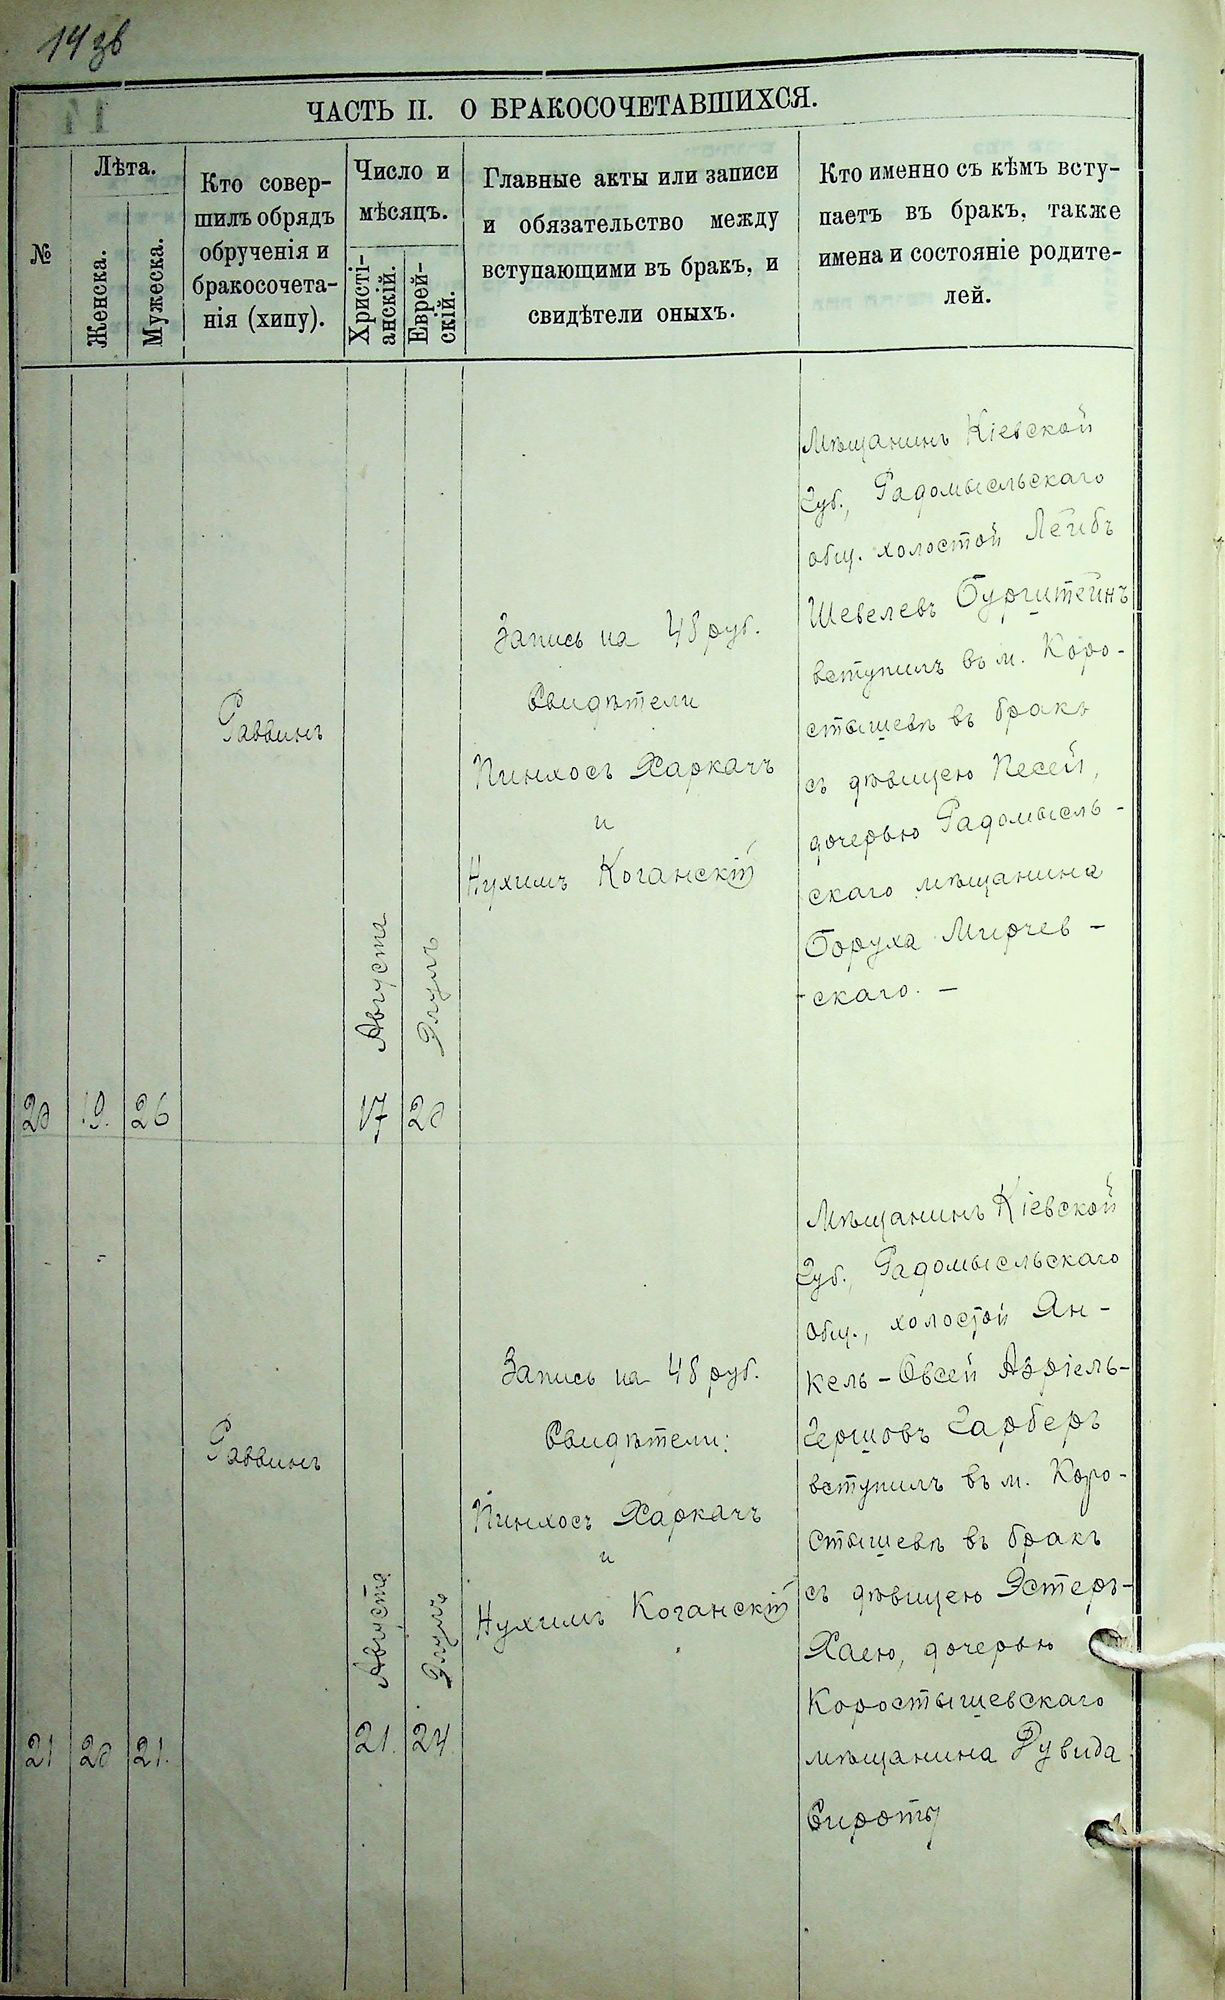 14 зв
ЧАСТЬ II. О БРАКОСОЧЕТАВШИХСЯ.
№
Лѣта.
Женска.
Мужеска.
Кто совер-
шилъ обрядъ
обрученія и
бракосочета-
нія (хипу).
Число и
мѣсяцъ.
Христі-
анскій.
Еврей-
скій.
Главные акты или записи
и обязательство между
вступающими въ бракъ, и
свидѣтели оныхъ.
Кто именно съ кѣмъ всту-
паетъ въ бракъ, также
имена и состояніе родите-
лей.
20
19.
26
Раввинъ
Августа
17
Элулъ
20
Запись на 48 руб.
Свидѣтели
Пинхосъ Харкачъ
и
Нухимъ Коганскій
Мѣщанинъ Кіевской
Губ., Радомысльскаго
общ. холостой Лейбъ
Шевелевъ Бурштейнъ
вступилъ въ м. Коро-
стышевѣ въ бракъ
съ дѣвицею Песей,
дочерью Радомысль-
скаго мѣщанина
Боруха Мирчев-
-скаго. —
21
20
21.
Раввинъ
Августа
21.
Элулъ
24.
Запись на 48 руб.
Свидѣтели:
Пинхосъ Харкачъ
и
Нухимъ Коганскій
Мѣщанинъ Кіевской
Губ., Радомысльскаго
Общ., холостой Ян-
кель-Овсей Азріель-
Гершовъ Гарберъ
вступилъ въ м. Коро-
стышевѣ въ бракъ
съ дѣвицею Эстеръ-
Хаею, дочерью
Коростышевскаго
мѣщанина Рувида
Сироты